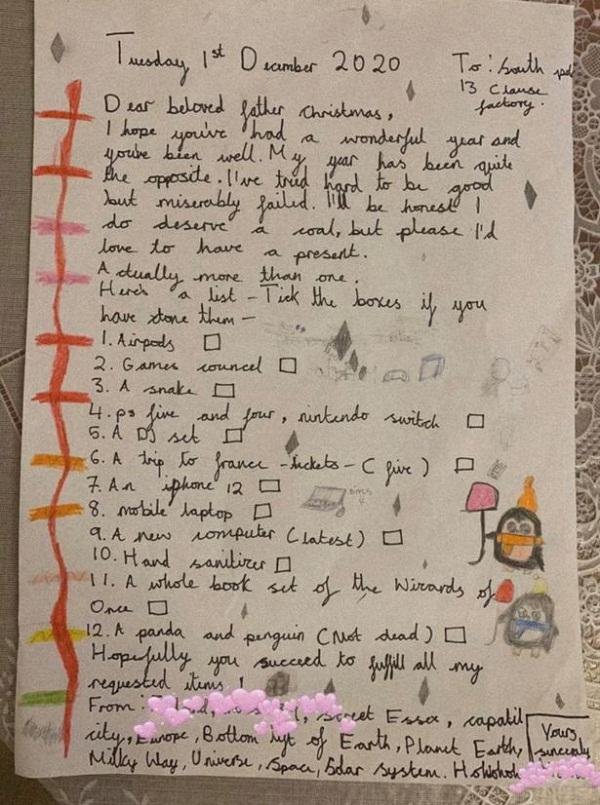 Tuesday 1st December 2020
To: South
13 Clause
factory.
Dear beloved father christmas,
I hope you've had a wonderful year and
you've been well. My year has been quite
the opposite. I've tried hard to be good
but miserably failed. I'll be honest I
do deserve a coal, but please I'd
love to have a present.
Actually more than one.
Here's a list - Tick the boxes if you
have done them -
1. Airpods
2. Games councel
3. A snake
4. ps five and four, nintendo switch
5. A DJ set
6. A trip to france - tickets - (five)
7. An iphone 12
8. mobile laptop
9. A new computer (latest)
10. Hand sanitizer
11. A whole book set of the Wizards of
Once
12. A panda and penguin (Not dead)
Hopefully you succeed to fulfill all my
requested items!
From: street Essex, capatil
city, Europe, Bottom of Earth, Planet Earth,
Milky Way, Universe, Space, Solar system. Hohohoh
Yours
sincerely